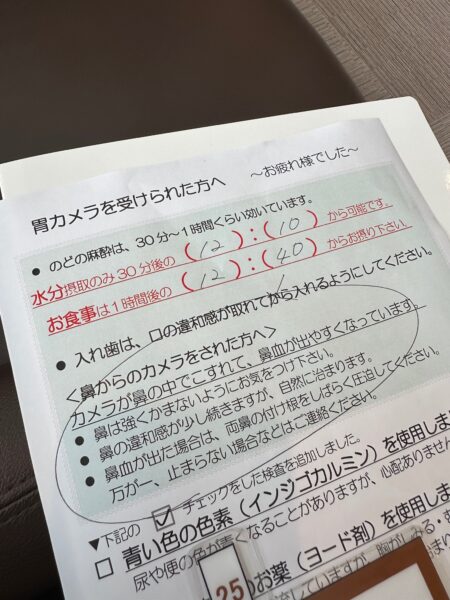 胃カメラを受けられた方へ ～お疲れ様でした～
● のどの麻酔は、30分～1時間くらい効いています。
水分摂取のみ30分後の（12）：（10）から可能です。
お食事は1時間後の（12）：（40）からお摂り下さい。
● 入れ歯は、口の違和感が取れてから入れるようにしてください。
＜鼻からのカメラをされた方へ＞
カメラが鼻の中でこすれて、鼻血が出やすくなっています。
● 鼻は強くかまないようにお気をつけ下さい。
● 鼻の違和感が少し続きますが、自然に治まります。
● 鼻血が出た場合は、両鼻の付け根をしばらく圧迫してください。
万が一、止まらない場合などはご連絡ください。
▼下記の ☑ チェックをした検査を追加しました。
□ 青い色の色素（インジゴカルミン）を使用しま
尿や便の色が青くなることがありますが、心配ありません
のお薬（ヨード剤）を使用しま
25